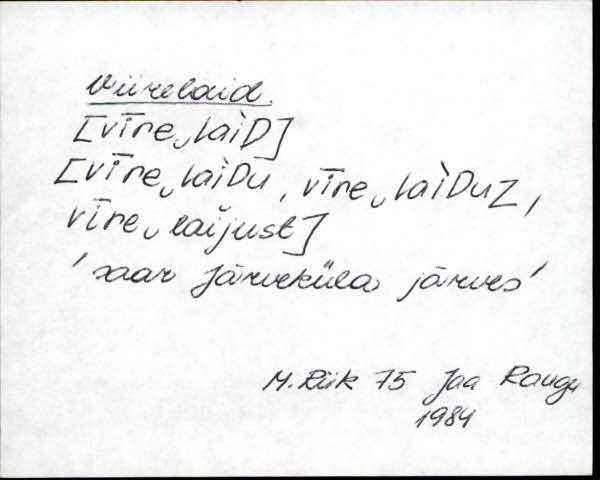 Viirelaid.
[vīre‿làiD]
[vīre‿làiDu, vīre‿làiDuZ,
vīre‿laijust]
'saar Järveküla järves'
M. Riik 75 Jaa Raugu
1984